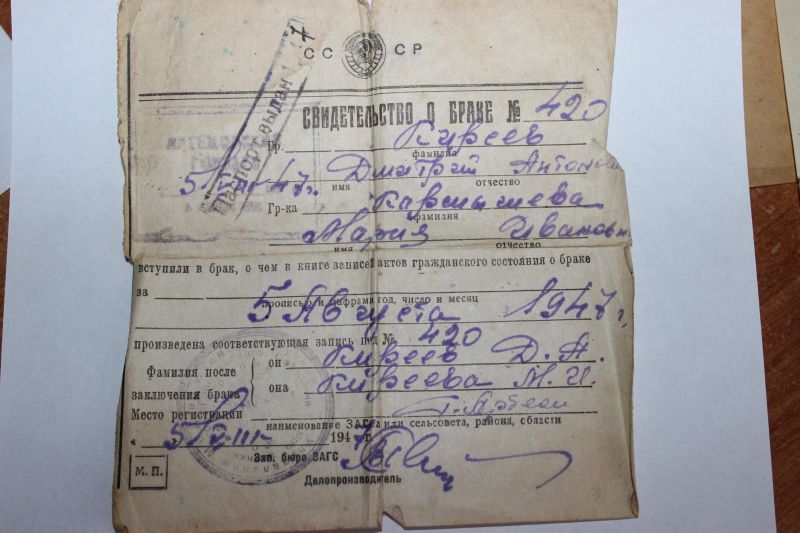 СССР
Паспорт выдан
СВИДЕТЕЛЬСТВО О БРАКЕ № 420
Гр. Киреев
фамилия
Дмитрий Антонович
5/VIII-47г.
имя отчество
Гр-ка Кармышева
фамилия
Мария Ивановн
имя отчество
вступили в брак, о чем в книге записей актов гражданского состояния о браке
за
прописью и цифрами год, число и месяц
5 Августа 1947 г,
произведена соответствующая запись под № 420
Фамилия после заключения брака
он Киреев Д. А.
она Киреева М. И.
Место регистрации
наименование ЗАГСа или сельсовета, района, области
« 5/VIII- 1947 г.
Зав. бюро ЗАГС
М. П.
Делопроизводитель